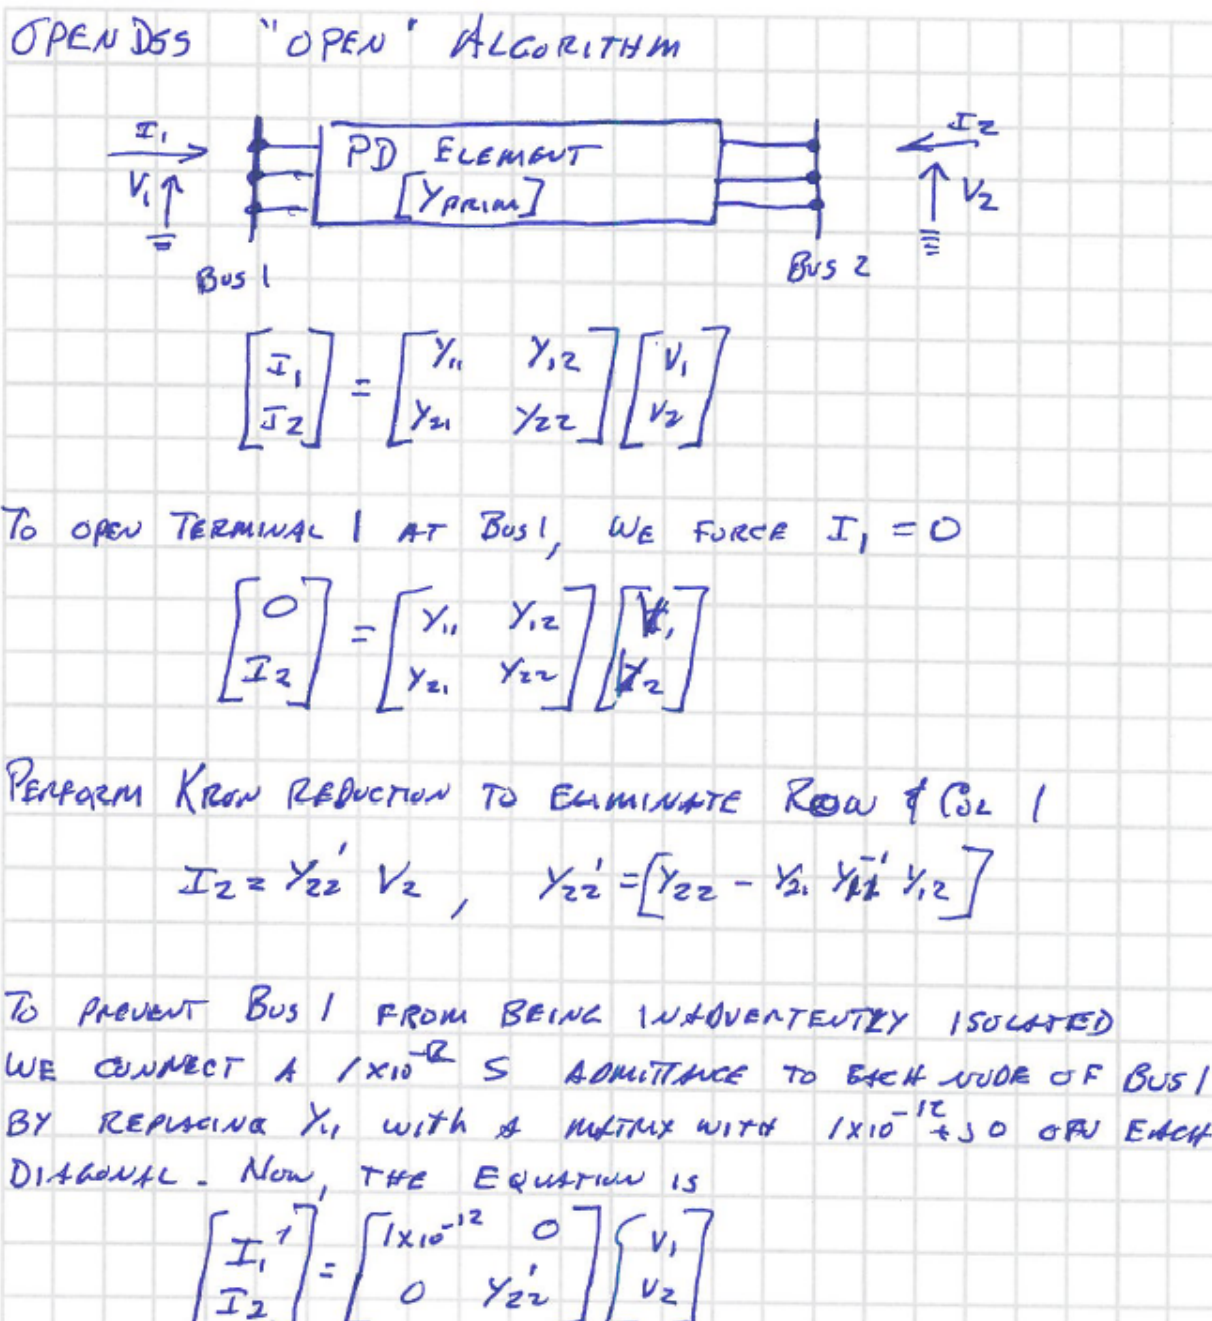 OPENDSS "OPEN" ALGORITHM
I₁ PD ELEMENT I₂
V₁ [YPRIM] V₂
BUS 1 BUS 2
[I₁ I₂] = [Y₁₁ Y₁₂ Y₂₁ Y₂₂] [V₁ V₂]
TO OPEN TERMINAL 1 AT BUS 1, WE FORCE I₁ = 0
[0 I₂] = [Y₁₁ Y₁₂ Y₂₁ Y₂₂] [V₁ V₂]
PERFORM KRON REDUCTION TO ELIMINATE ROW & COL 1
I₂ = Y₂₂' V₂ , Y₂₂' = [Y₂₂ - Y₂₁ Y₁₁⁻¹ Y₁₂]
TO PREVENT BUS 1 FROM BEING INADVERTENTLY ISOLATED
WE CONNECT A 1x10⁻¹² S ADMITTANCE TO EACH NODE OF BUS 1
BY REPLACING Y₁₁ WITH A MATRIX WITH 1x10⁻¹² + j0 ON EACH
DIAGONAL. NOW, THE EQUATION IS
[I₁' I₂] = [1x10⁻¹² 0 0 Y₂₂'] [V₁ V₂]